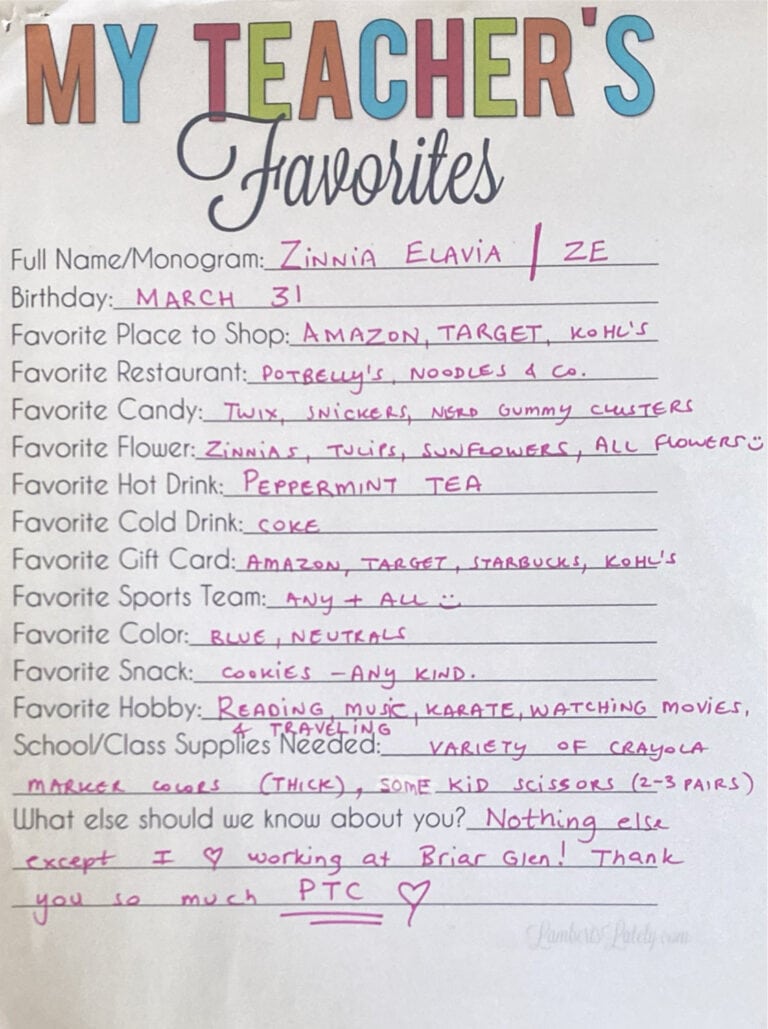 MY TEACHER'S
Favorites
Full Name/Monogram: ZINNIA ELAVIA | ZE
Birthday: MARCH 31
Favorite Place to Shop: AMAZON, TARGET, KOHL'S
Favorite Restaurant: POTBELLY'S, NOODLES & CO.
Favorite Candy: TWIX, SNICKERS, NERD GUMMY CLUSTERS
Favorite Flower: ZINNIAS, TULIPS, SUNFLOWERS, ALL FLOWERS
Favorite Hot Drink: PEPPERMINT TEA
Favorite Cold Drink: COKE
Favorite Gift Card: AMAZON, TARGET, STARBUCKS, KOHL'S
Favorite Sports Team: ANY + ALL
Favorite Color: BLUE, NEUTRALS
Favorite Snack: COOKIES - ANY KIND.
Favorite Hobby: READING, MUSIC, KARATE, WATCHING MOVIES,
& TRAVELING
School/Class Supplies Needed: VARIETY OF CRAYOLA
MARKER COLORS (THICK), SOME KID SCISSORS (2-3 PAIRS)
What else should we know about you? Nothing else
except I ♡ working at Briar Glen! Thank
you so much PTC ♡
LambertsLately.com